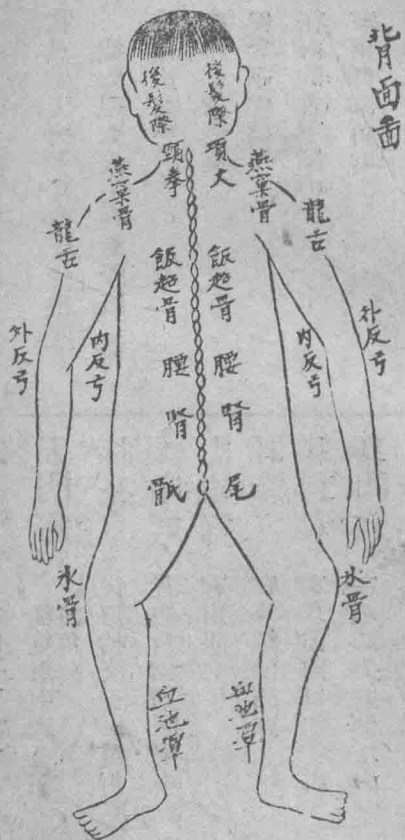 背面啚
後髮際
後髮際
頸拳
項大
燕窠骨
燕窠骨
龍舌
龍舌
飯匙骨
飯匙骨
外反弓
內反弓
內反弓
外反弓
腰
腰
腎
腎
骶
尾
水骨
水骨
血池潭
血池潭